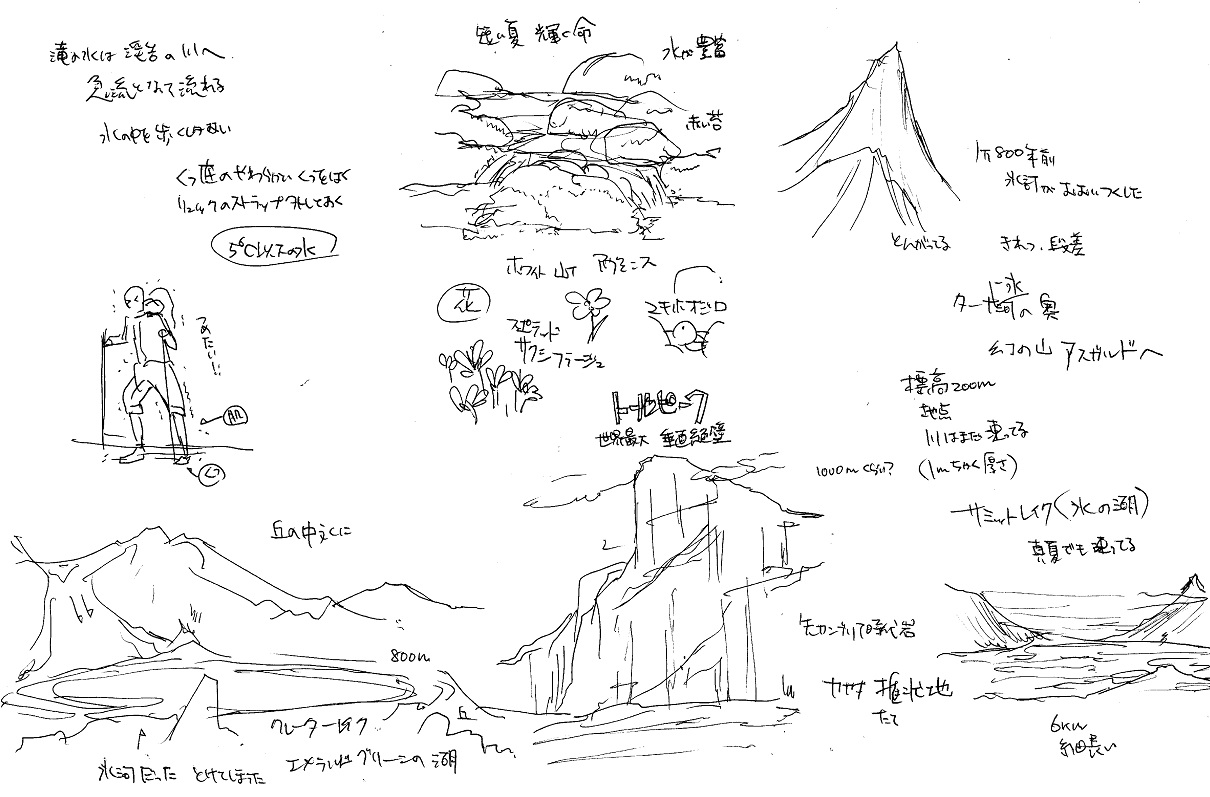 滝の水は 渓谷の川へ
急流となって流れる
水の中を歩くしかない
くつ底のやわらかいくつをはく
リュックのストラップ外しておく
5°C以下の水
つめたい!!
肌
くつ
短い夏 輝く命
水が豊富
赤い苔
ホワイト
花
ユキホオジロ
世界最大 垂直絶壁
約800年前
氷河がおおいつくした
とんがってる
きれつ・段差
ターナー氷河の奥
幻の山 アスガルドへ
標高200m
地点
川はまだ凍ってる
(1mちかく厚さ)
1000mくらい?
サミットレイク(氷の湖)
真夏でも凍ってる
先カンブリア時代岩
カナダ 楯状地
たて
6km
細長い
丘の中っくに
800m
クレーターレイク
丘
エメラルドグリーンの湖
氷河だった とけてしまった